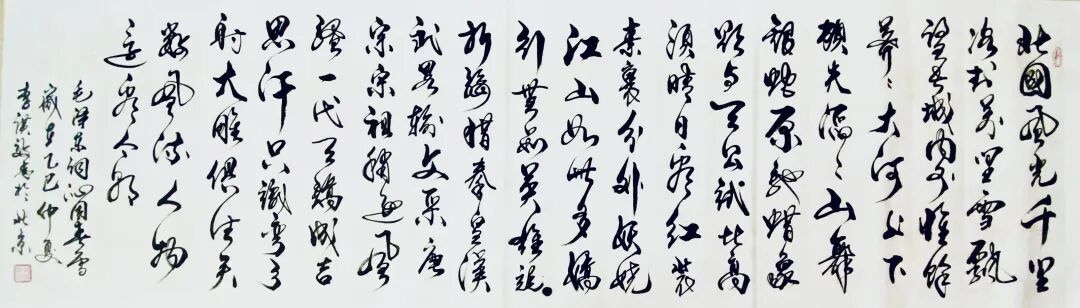 北國風光千里
冰封万里雪飄
望長城內外惟餘
莽〻大河上下
頓失滔〻山舞
銀蛇原馳蜡象
欲与天公試比高
須晴日看紅裝
素裹分外妖嬈
江山如此多嬌
引無數英雄競
折腰惜秦皇漢
武略輸文采唐
宗宋祖稍遜風
騷一代天驕成吉
思汗只識彎弓
射大雕俱往矣
數風流人物
還看今朝
毛澤東詞沁園春雪
歲在乙巳仲夏
李 書於北京